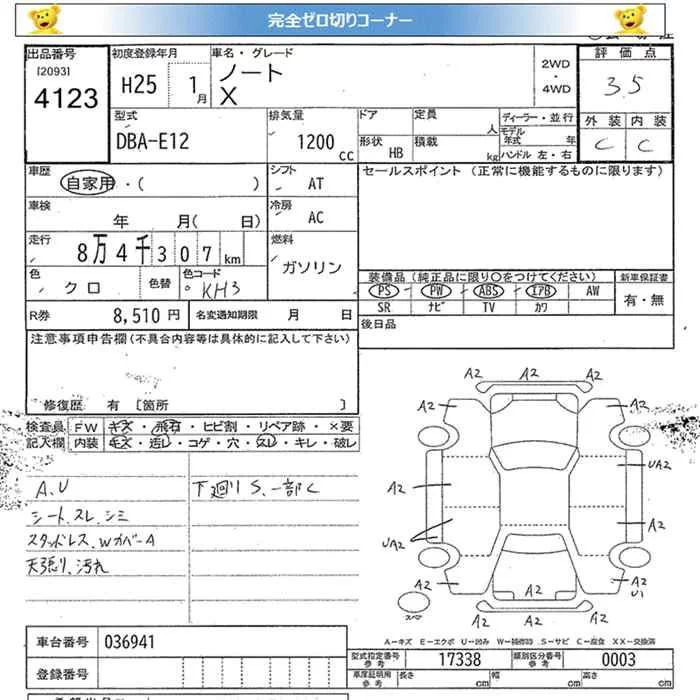 完全ゼロ切りコーナー
出品番号
[2093]
4123
初度登録年月
H25 1月
車名・グレード
ノート
X
2WD
・
4WD
評価点
3.5
外装 内装
C C
型式
DBA-E12
排気量
1200 cc
ドア
定員
人
形状
HB
積載
kg
ディーラー・並行
モデル年式 年
ハンドル 左・右
車歴
自家用・( )
シフト
AT
セールスポイント (正常に機能するものに限ります)
車検
年 月( 日)
冷房
AC
走行
8万4千307km
燃料
ガソリン
色
クロ
色替
色コード
KH3
装備品 (純正品に限り○をつけてください)
PS PW ABS エアB AW
SR ナビ TV カワ
新車保証書
有・無
R券 8,510 円
名変通知期限 月 日
後日品
注意事項申告欄(不具合内容等は具体的に記入して下さい)
修復歴 有 [箇所 ]
検査員記入欄
FW キズ・飛石・ヒビ割・リペア跡・×要
内装 キズ・汚レ・コゲ・穴・スレ・キレ・破レ
A.U
シート.スレ.シミ
スタッドレス.WカバーA
天張り.汚れ
下廻りS.一部C
A2 A2
A2 A2
UA2
A2
A2
UA2
A2
A2
A2
U1
A2
A2
スペア
A-キズ E-エクボ U-凹み W-補修跡 S-サビ C-腐食 XX-交換済
車台番号 036941
登録番号
型式指定番号 参考 17338
類別区分番号 参考 0003
車庫証明用 参考 長さ cm 幅 cm 高さ cm